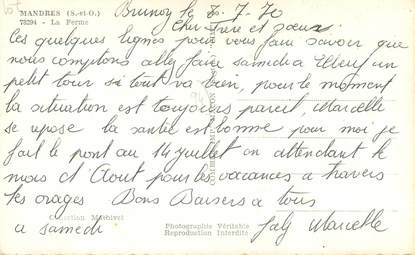 MANDRES (S.-et-O.)
78294 - La Ferme
Brunoy le 7-7-70
Cher Frère et sœur
Ces quelques lignes pour vous faire savoir que
nous comptons aller faire samedi a un
petit tour si tout va bien, pour le moment
la situation est toujours pareil, Marcelle
se repose la santée est bonne pour moi je
fait le pont au 14 juillet en attendant le
mois d'Aout pour les vacances a travers
les orages Bons Baisers a tous
Collection Mathivet
a samedi
Photographie Véritable
Reproduction Interdite
Marcelle